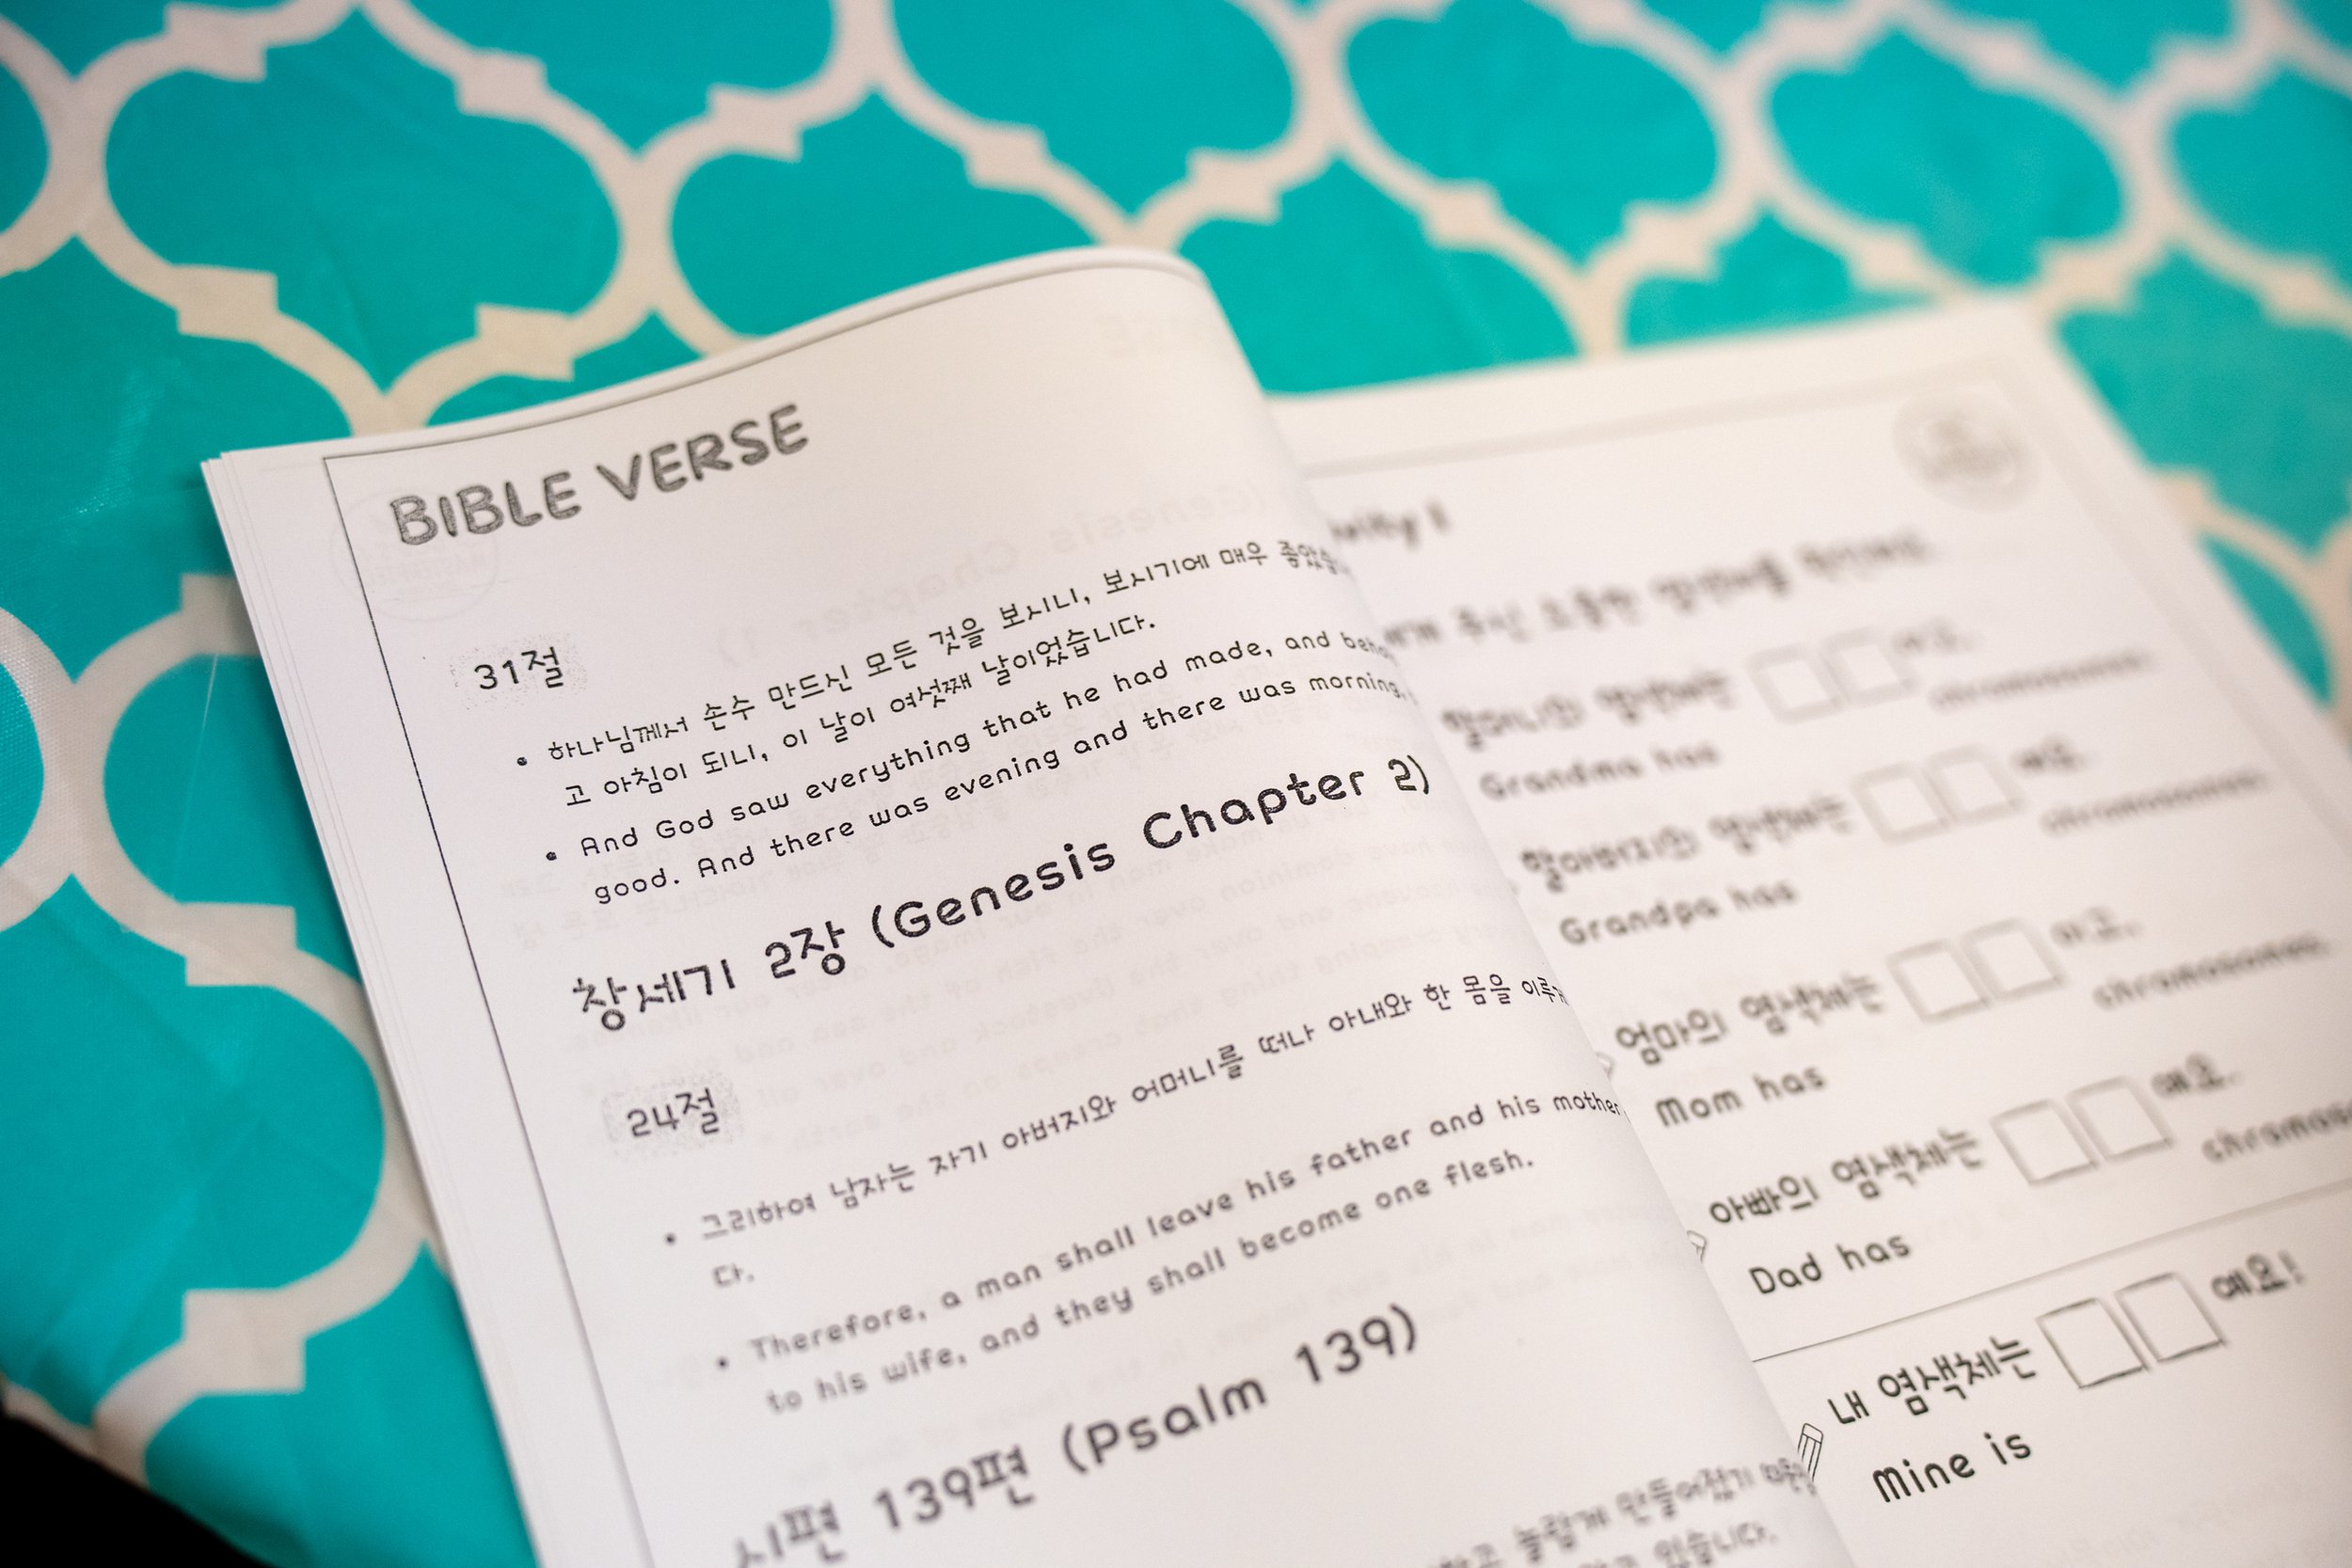 BIBLE VERSE
31절
• 하나님께서 손수 만드신 모든 것을 보시니, 보시기에 매우
고 아침이 되니, 이 날이 여섯째 날이었습니다.
• And God saw everything that he had made, and
good. And there was evening and there was morning,
창세기 2장 (Genesis Chapter 2)
24절
• 그리하여 남자는 자기 아버지와 어머니를 떠나 아내와 한 몸을
다.
• Therefore, a man shall leave his father and his mother
to his wife, and they shall become one flesh.
시편 139편 (Psalm 139)
놀랍게 만들어졌기
있습니다.
할머니의 염색체는
Grandma has chromosomes.
할아버지의 염색체는 예요.
Grandpa has chromosomes.
엄마의 염색체는 이고,
Mom has chromosomes.
아빠의 염색체는 예요.
Dad has
내 염색체는 예요!
Mine is